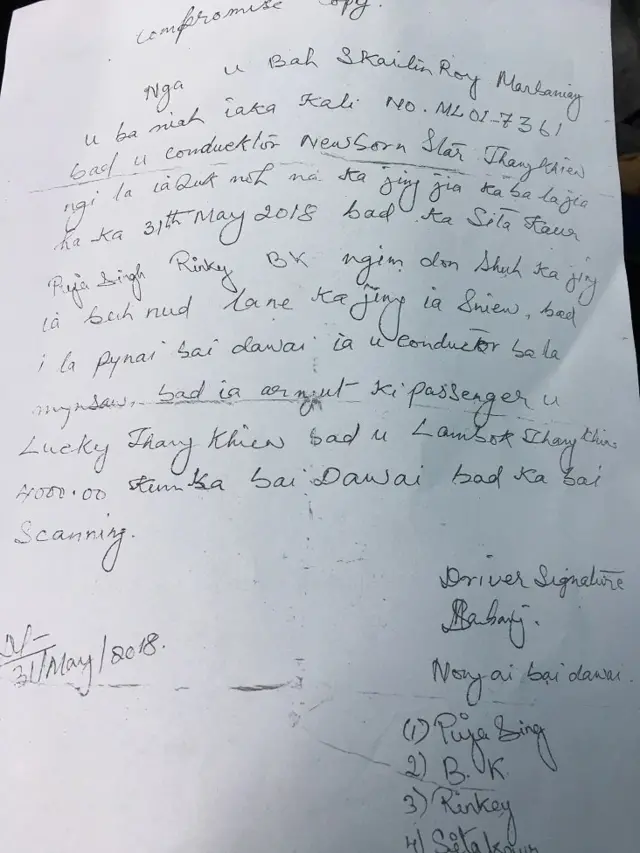 Compromise Copy.
Nga u Bah Skailin Roy Marbaniang
u ba niah ia ka Kali No. ML01-7361
bad u conducktor Newborn Star Thangkhiew
ngi la ia Quk noh na ka jing jia ka ba lajia
ha ka 31th May 2018 bad ka Sita Kaur
Puja Singh Rinky BK ngim don shuh ka jing
ia bud lane ka jing ia Snien, bad
i la pynai bai dawai ia u conductor ba la
mynsaw, bad ia arngut ki passenger u
Lucky Thangkhiew bad u Lambok Thangkhiew
4000.00 ka bai Dawai bad ka bai
Scanning.
Driver Signature
D/-
31/May/2018.
Nong ai bai dawai.
(1) Puja Sing
2) B.K
3) Rinkey
4) Sita kaur